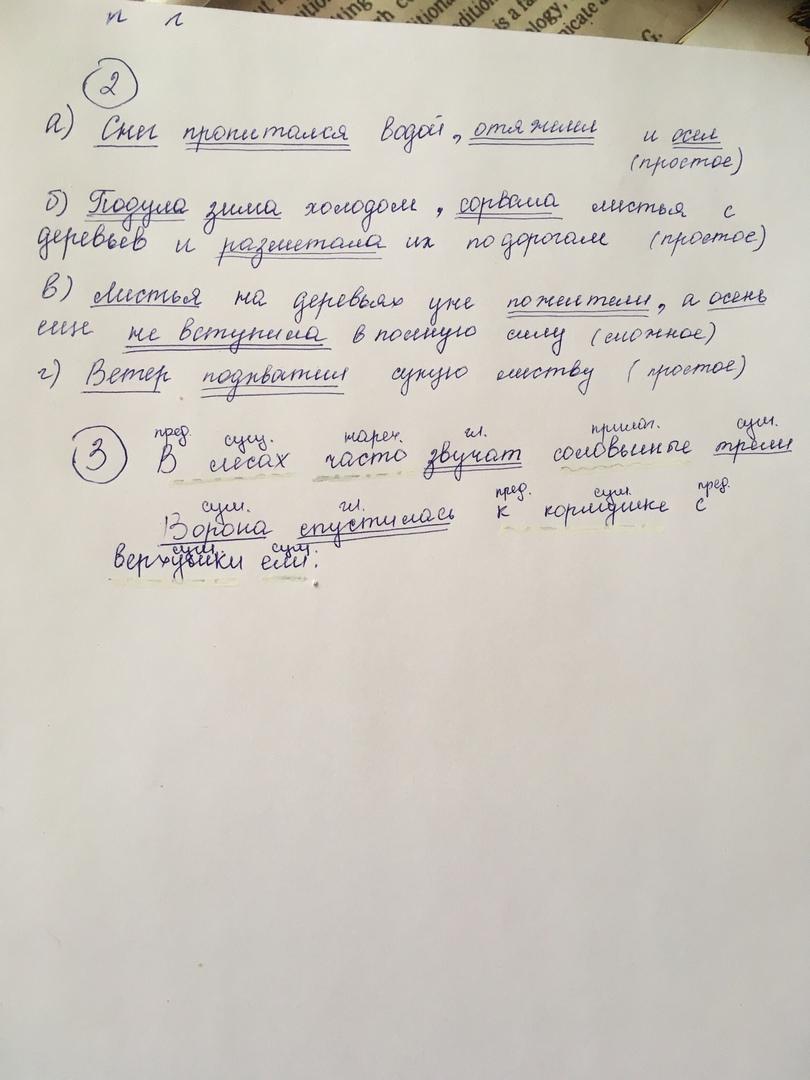 п л
2
а) Снег пропитался водой, отяжелел и осел
(простое)
б) Подула зима холодом, сорвала листья с
деревьев и разметала их по дорогам (простое)
в) Листья на деревьях уже пожелтели, а осень
еще не вступила в полную силу (сложное)
г) Ветер подхватил сухую листву (простое)
пред. сущ. нареч. гл. прилаг. сущ.
3 В лесах часто звучат соловьиные трели
сущ. гл. пред. сущ. пред.
Ворона спустилась к кормушке с
сущ. сущ.
верхушки ели.